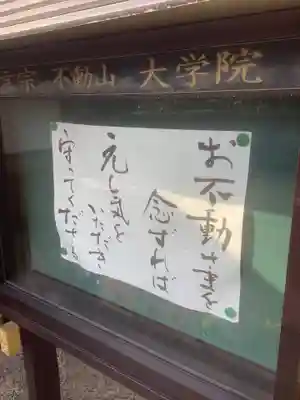 言宗 不動山 大学院
お不動さまを
念ずれば
元気を
いただき、
守ってくださる